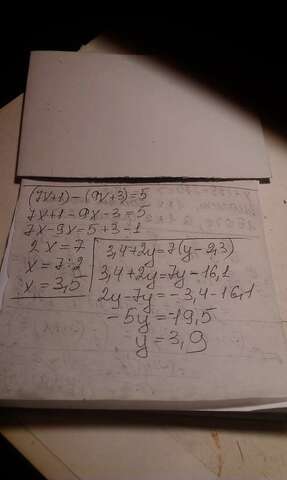 (7x+1)-(9x+3)=5
7x+1-9x-3=5
7x-9x=5+3-1
2x=7
x=7:2
x=3,5
3,4+2y=7(y-2,3)
3,4+2y=7y-16,1
2y-7y=-3,4-16,1
-5y=-19,5
y=3,9